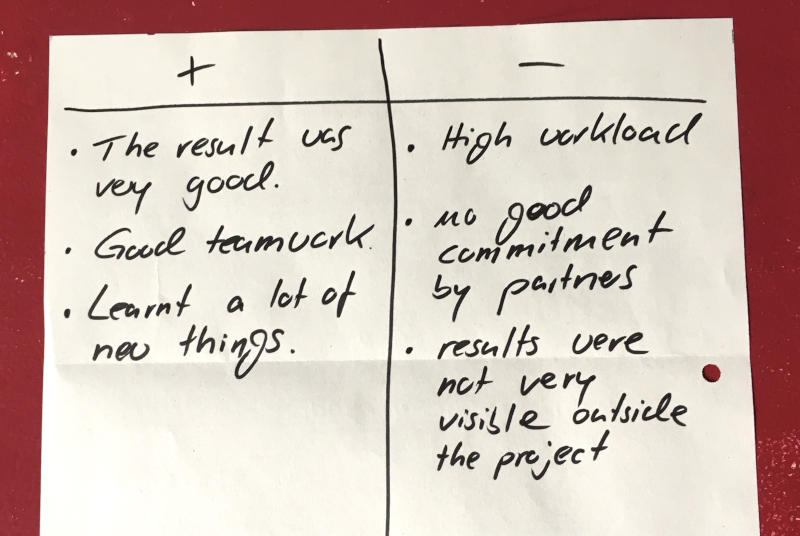 +
• The result was
very good.
• Good teamwork.
• Learnt a lot of
new things.
−
• High workload
• no good
commitment
by partners
• results were
not very
visible outside
the project